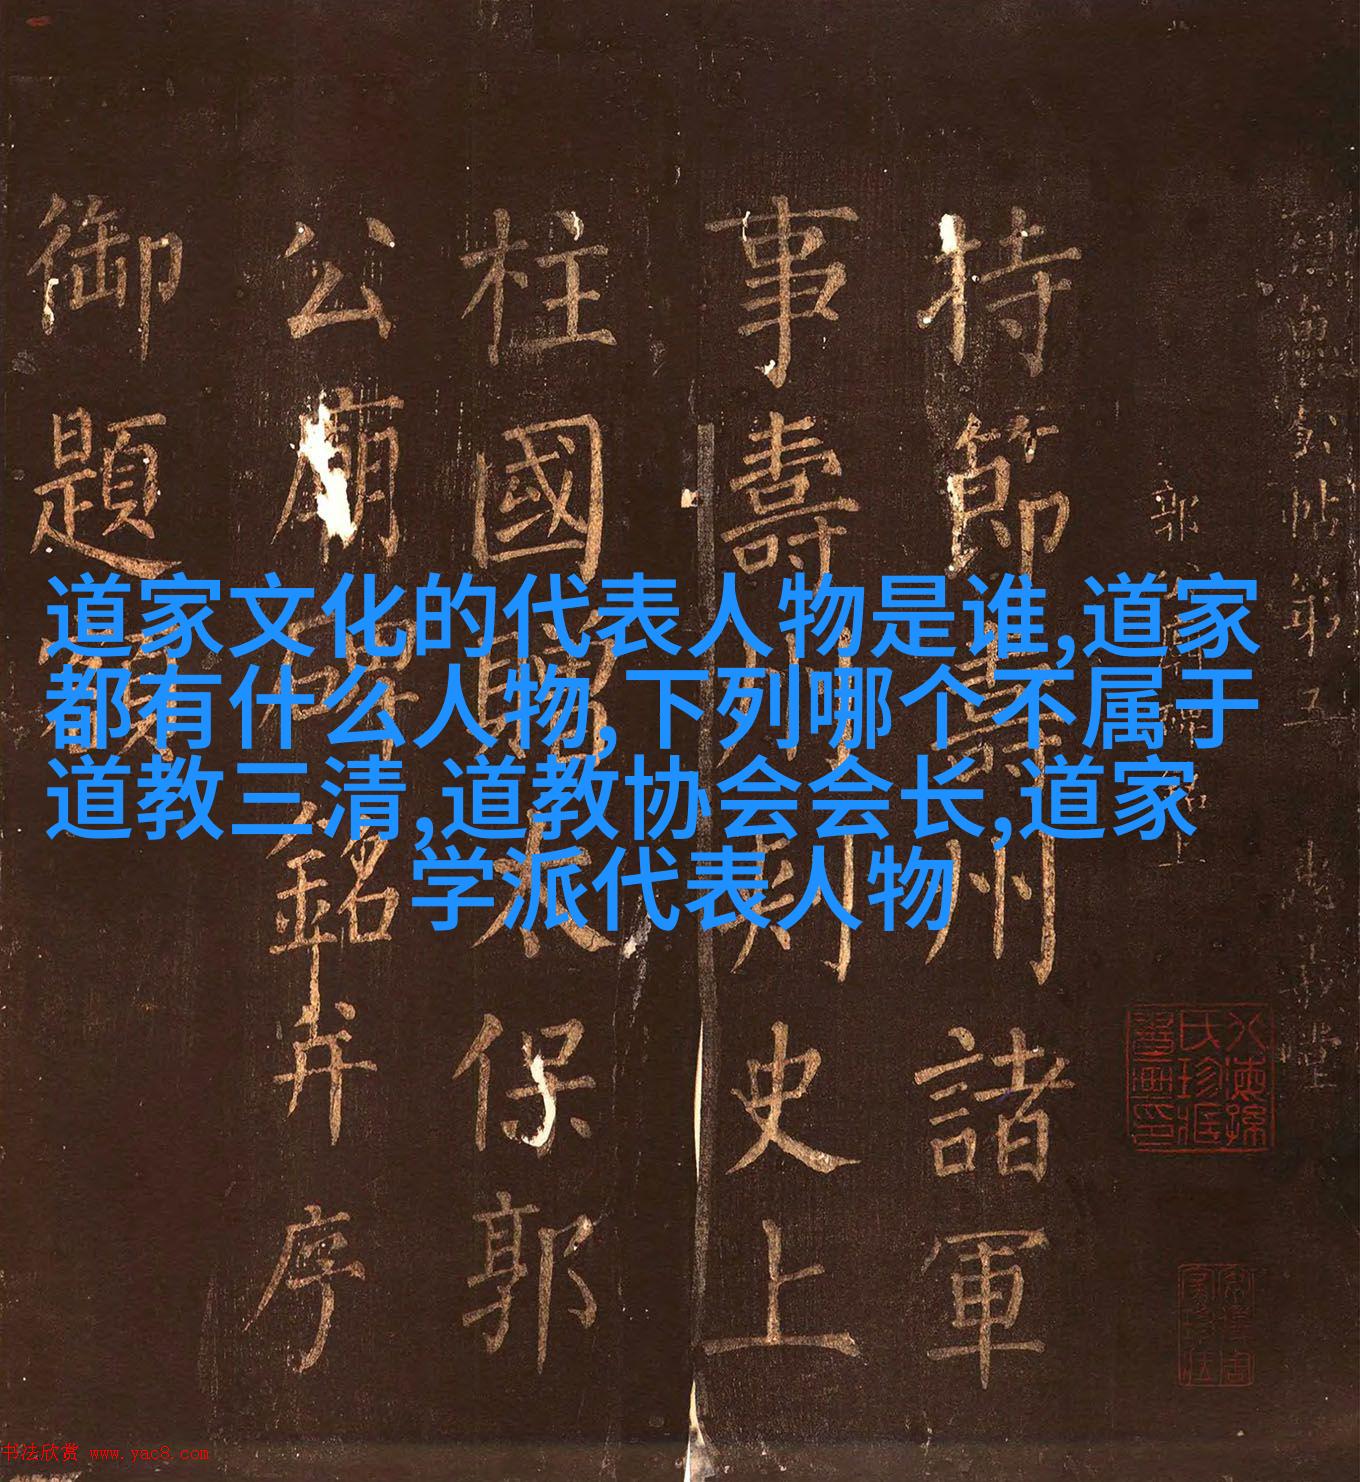 道家文化的代表人物是谁,道家
都有什么人物,下列哪个不属于
道教三清,道教协会会长,道家
学派代表人物
持節壽州諸軍
事壽州刺史上
柱國賜太保郭
公廟碑銘并序
御題額
书法欣赏 www.yac8.com